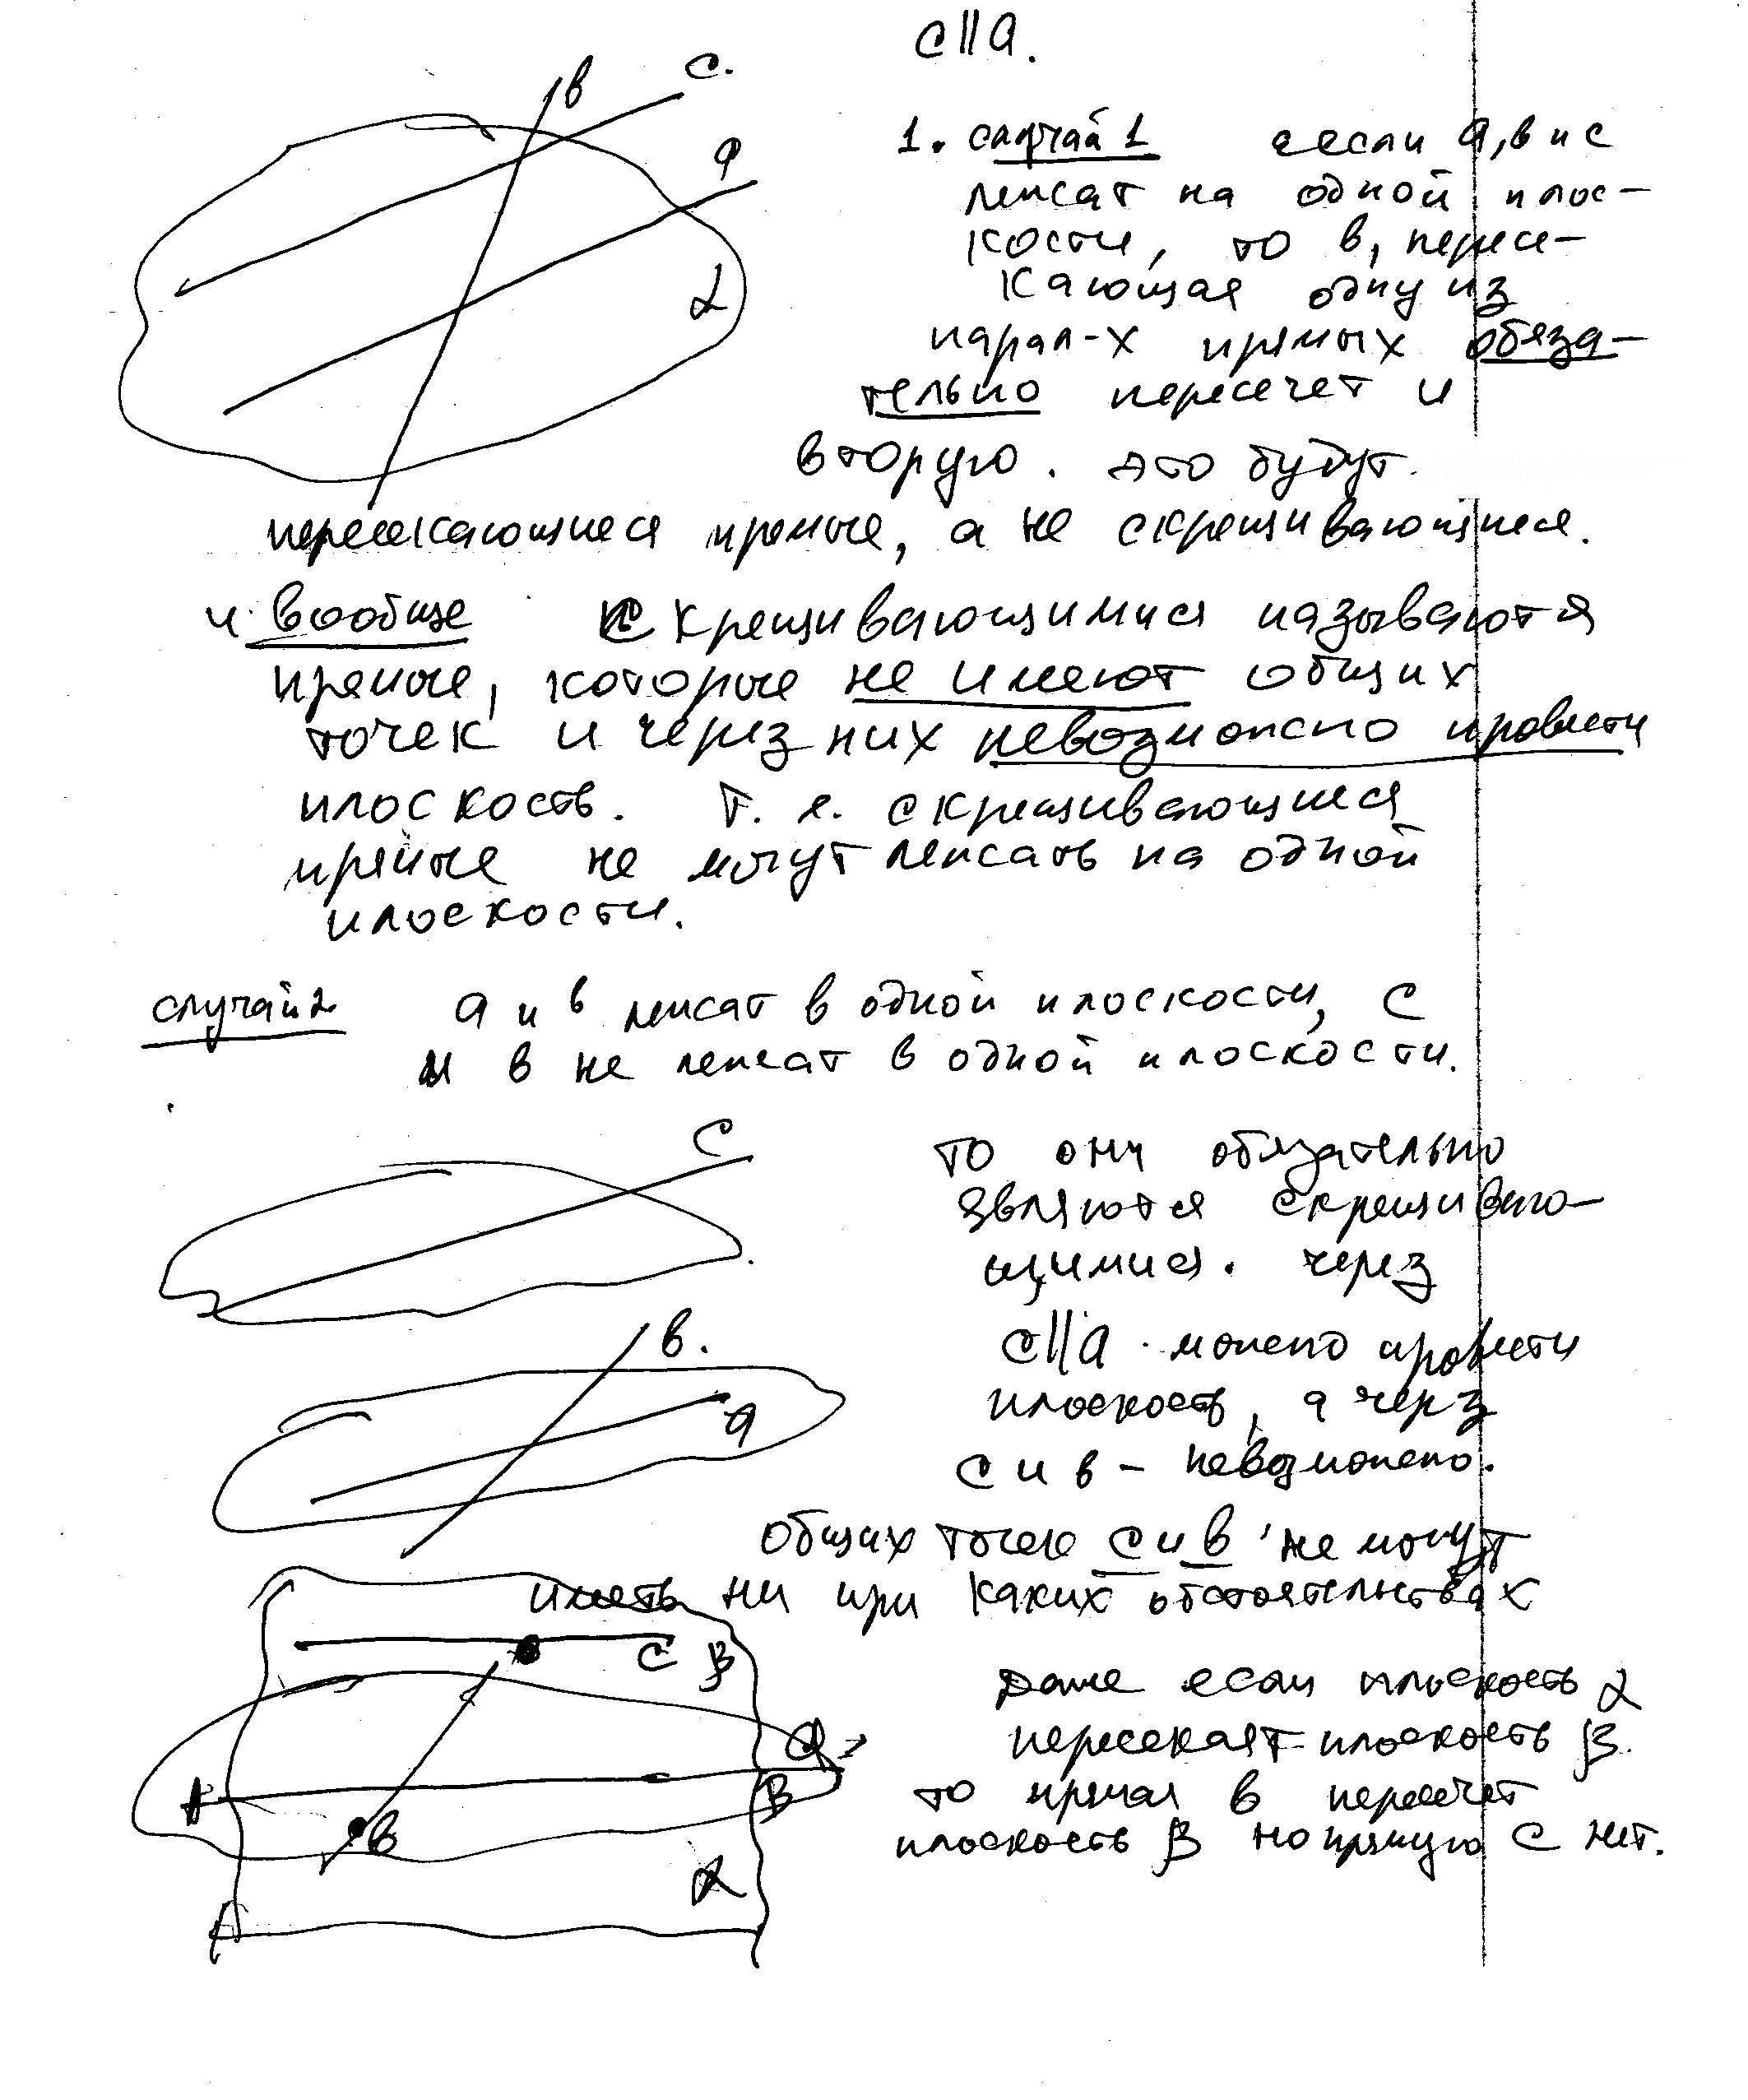 c||a.
в
c.
a
α
1. случай 1 если a, в и c
лежат на одной плос-
кости, то в, пересе-
кающая одну из
парал-х прямых обяза-
тельно пересечет и
вторую. это будут
пересекающиеся прямые, а не скрещивающиеся.
и вообще Скрещивающимися называются
прямые, которые не имеют общих
точек и через них невозможно провести
плоскость. Т. е. скрещивающиеся
прямые не могут лежать на одной
плоскости.
случай 2 a и в лежат в одной плоскости, c
и в не лежат в одной плоскости.
c
то они обязательно
являются скрещиваю-
щимися. через
в.
c||a можно провести
a
плоскость, а через
c и в – невозможно.
Общих точек c и в не могут
иметь ни при каких обстоятельствах
c β
Даже если плоскость α
a
пересекает плоскость β
A
B
то прямая в пересечет
в
плоскость β но прямую c нет.
α